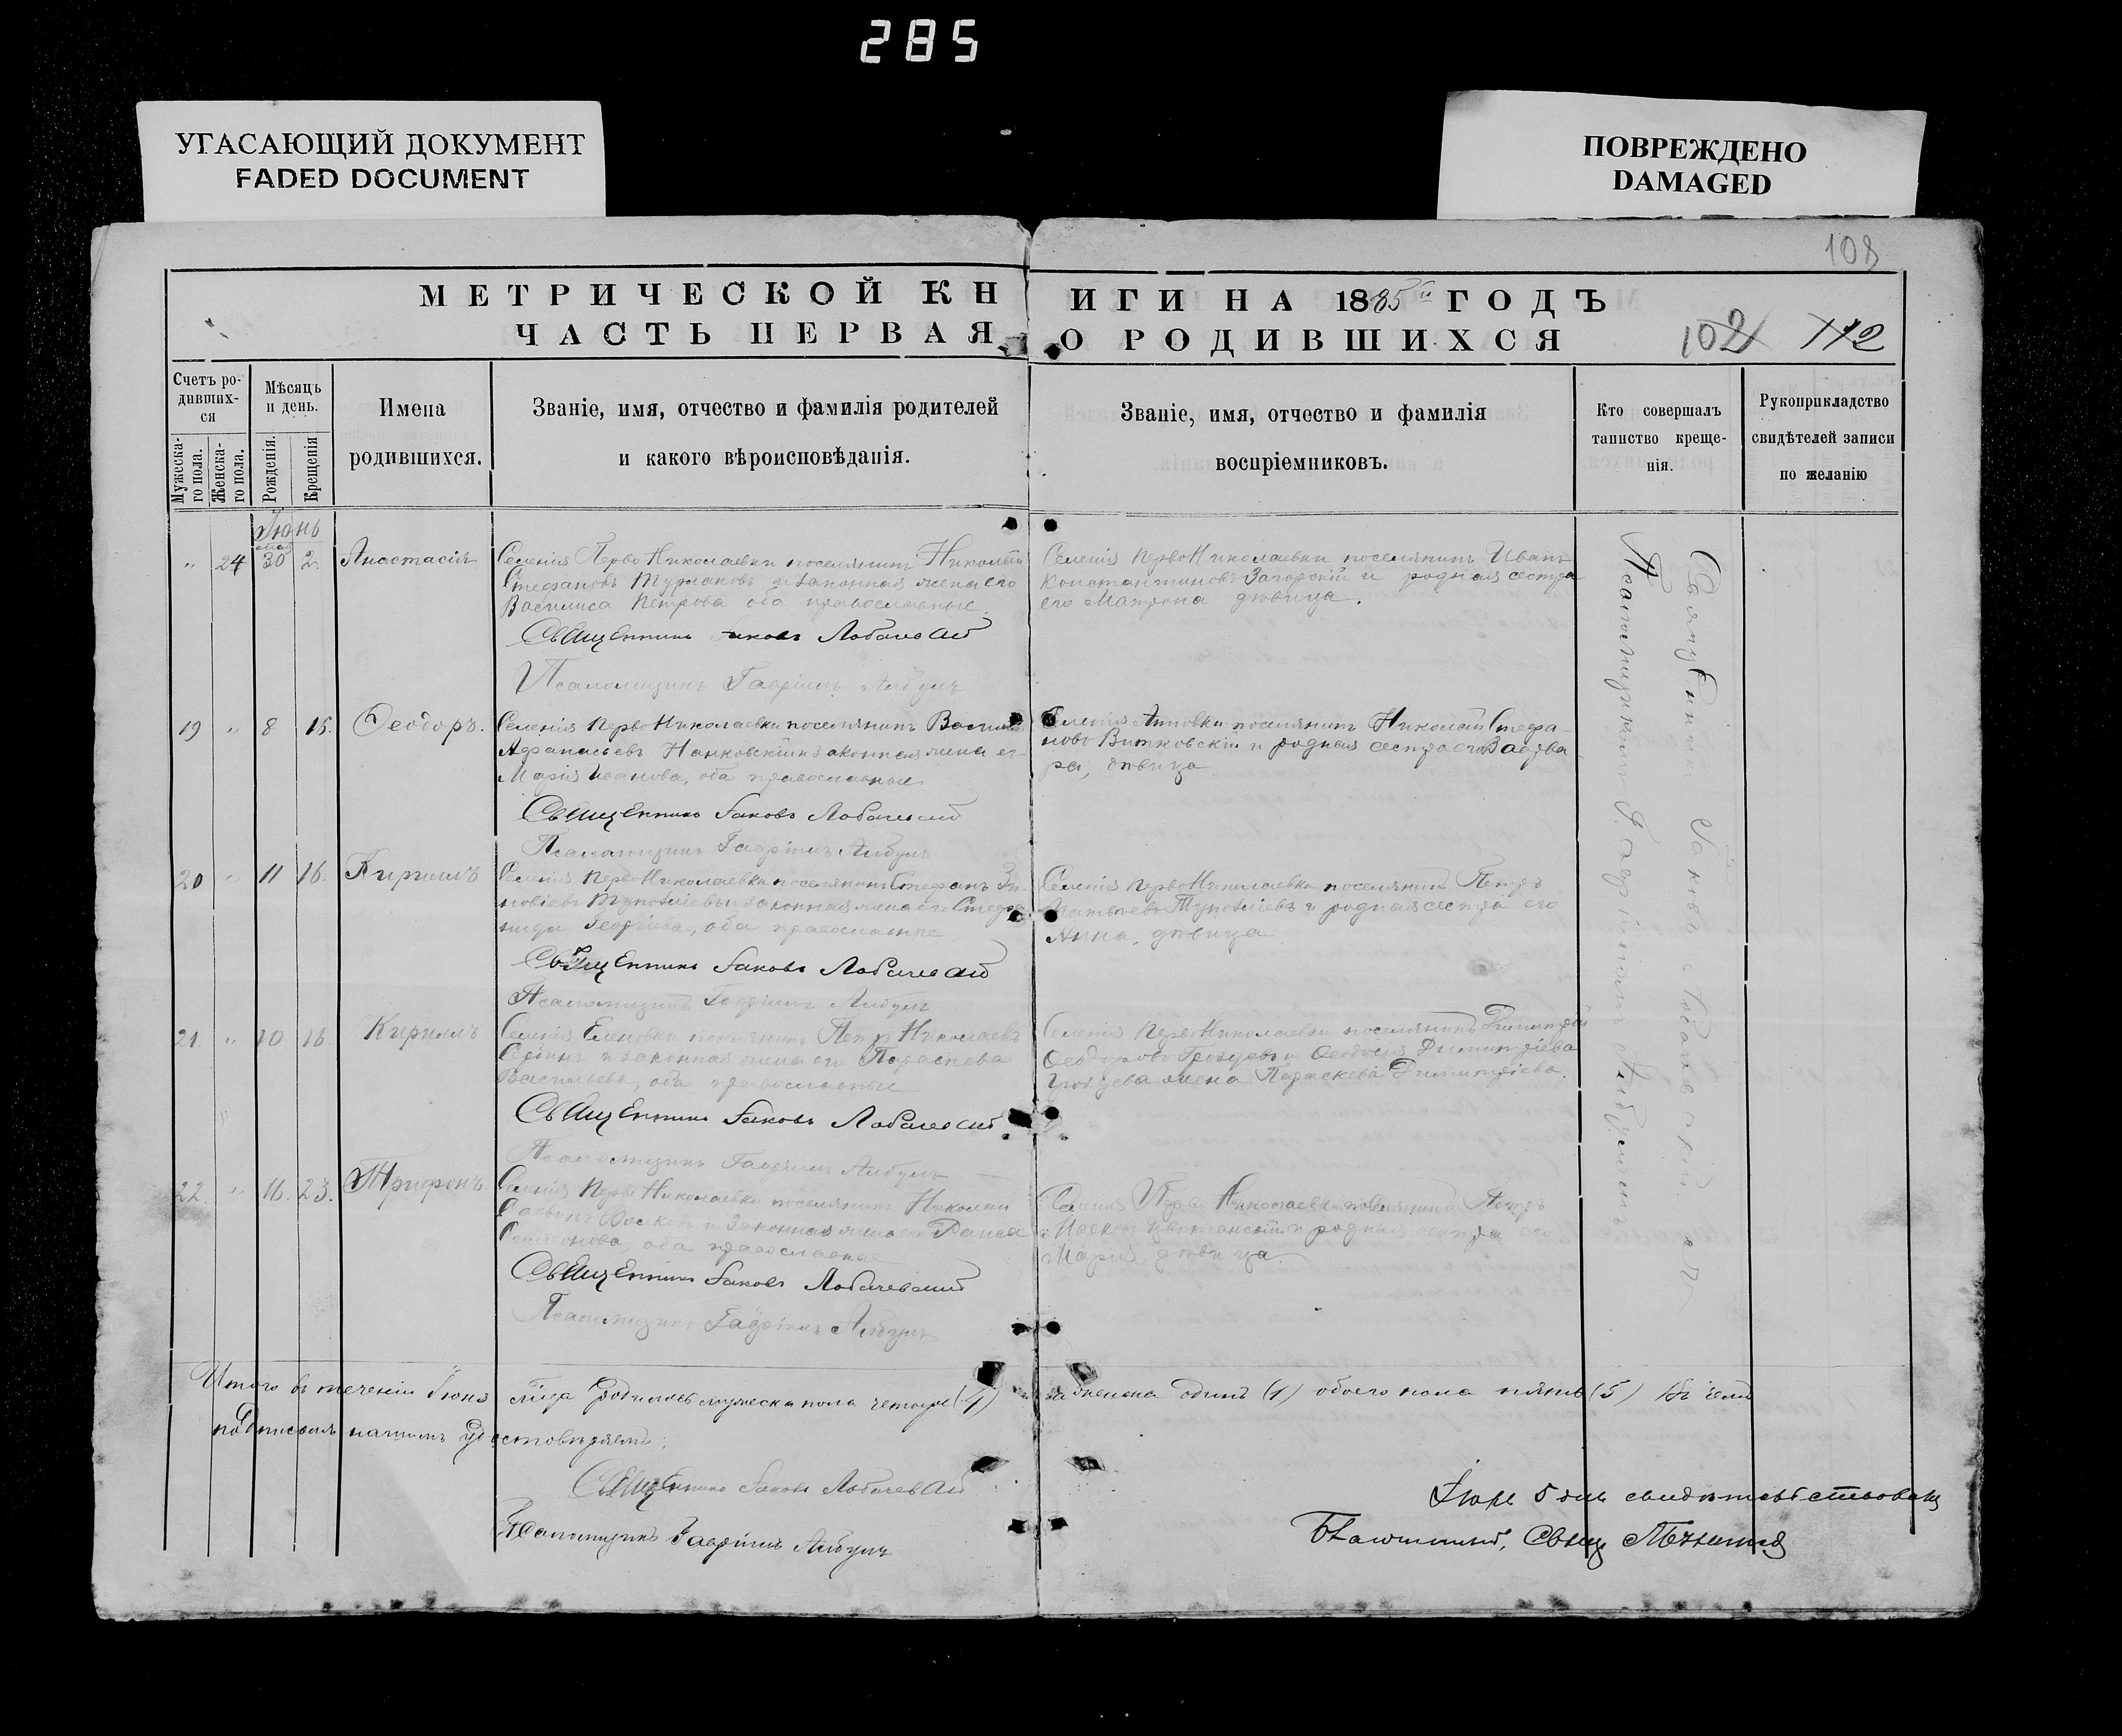 285
УГАСАЮЩИЙ ДОКУМЕНТ
FADED DOCUMENT
ПОВРЕЖДЕНО
DAMAGED
108
МЕТРИЧЕСКОЙ КНИГИ НА 1885й ГОДЪ
ЧАСТЬ ПЕРВАЯ О РОДИВШИХСЯ
102 112
Счетъ родившихся
Мужескаго пола.
Женскаго пола.
Мѣсяцъ и день.
Рожденія.
Крещенія
Имена родившихся.
Званіе, имя, отчество и фамилія родителей
и какого вѣроисповѣданія.
Званіе, имя, отчество и фамилія
воспріемниковъ.
Кто совершалъ
таинство креще-
нія.
Рукоприкладство
свидѣтелей записи
по желанію
Іюнь
„ 24 мая 30 2. Анастасія
Селенія Перво Николаевки поселянинъ Николай
Стефановъ и законная жена его
Василиса Петрова оба православные.
Священникъ Іаковъ Лобачевскій
Псаломщикъ Гавріилъ
Селенія ПервоНиколаевки поселянинъ Иванъ
Константиновъ Загорскій и родная сестра
его Матрона дѣвица.
19 „ 8 16. Ѳеодоръ.
Селенія ПервоНиколаевки поселянинъ
Афанасьевъ законная жена его
Марія Иванова, оба православные
Священникъ Іаковъ Лобачевскій
Псаломщикъ Гавріилъ
Селенія Антовки поселянинъ Николай Стефа-
новъ Витковскій и родная сестра его Варва
ра, дѣвица
20 „ 11 16. Кириллъ
Селенія ПервоНиколаевки поселянинъ Стефанъ Зи-
новіевъ законная жена его Стефа
нида Георгіева, оба православные
Священникъ Іаковъ Лобачевскій
Псаломщикъ Гавріилъ
Селенія ПервоНиколаевки поселянинъ Петръ
и родная сестра его
Анна, дѣвица
21. „ 10 16. Кириллъ
Селенія Еленовки поселянинъ Петръ Николаевъ
и законная жена его Параскева
Васильева, оба православные
Священникъ Іаковъ Лобачевскій
Псаломщикъ Гавріилъ
Селенія ПервоНиколаевки поселянинъ Димитрій
Ѳеодоровъ Гроздевъ и Димитріева
Гроздева жена Параскева Димитріева.
22. „ 16. 23. Трифонъ
Селенія ПервоНиколаевки поселянинъ Николай
и законная жена его Раиса
оба православные
Священникъ Іаковъ Лобачевскій
Псаломщикъ Гавріилъ
Селенія Перво Николаевки поселянинъ Петръ
и родная сестра его
Марія, дѣвица.
Священникъ Іаковъ Лобачевскій съ
Псаломщикомъ Гавріиломъ
Итого въ теченіи Іюня мѣсяца родилось мужеска пола четыре (4) а женска одинъ (1) обоего пола пять (5) въ чемъ
подписомъ нашимъ удостовѣряемъ:
Священникъ Іаковъ Лобачевскій
Псаломщикъ Гавріилъ
Іюля 5 дня свидѣтельствовалъ
Свящ.